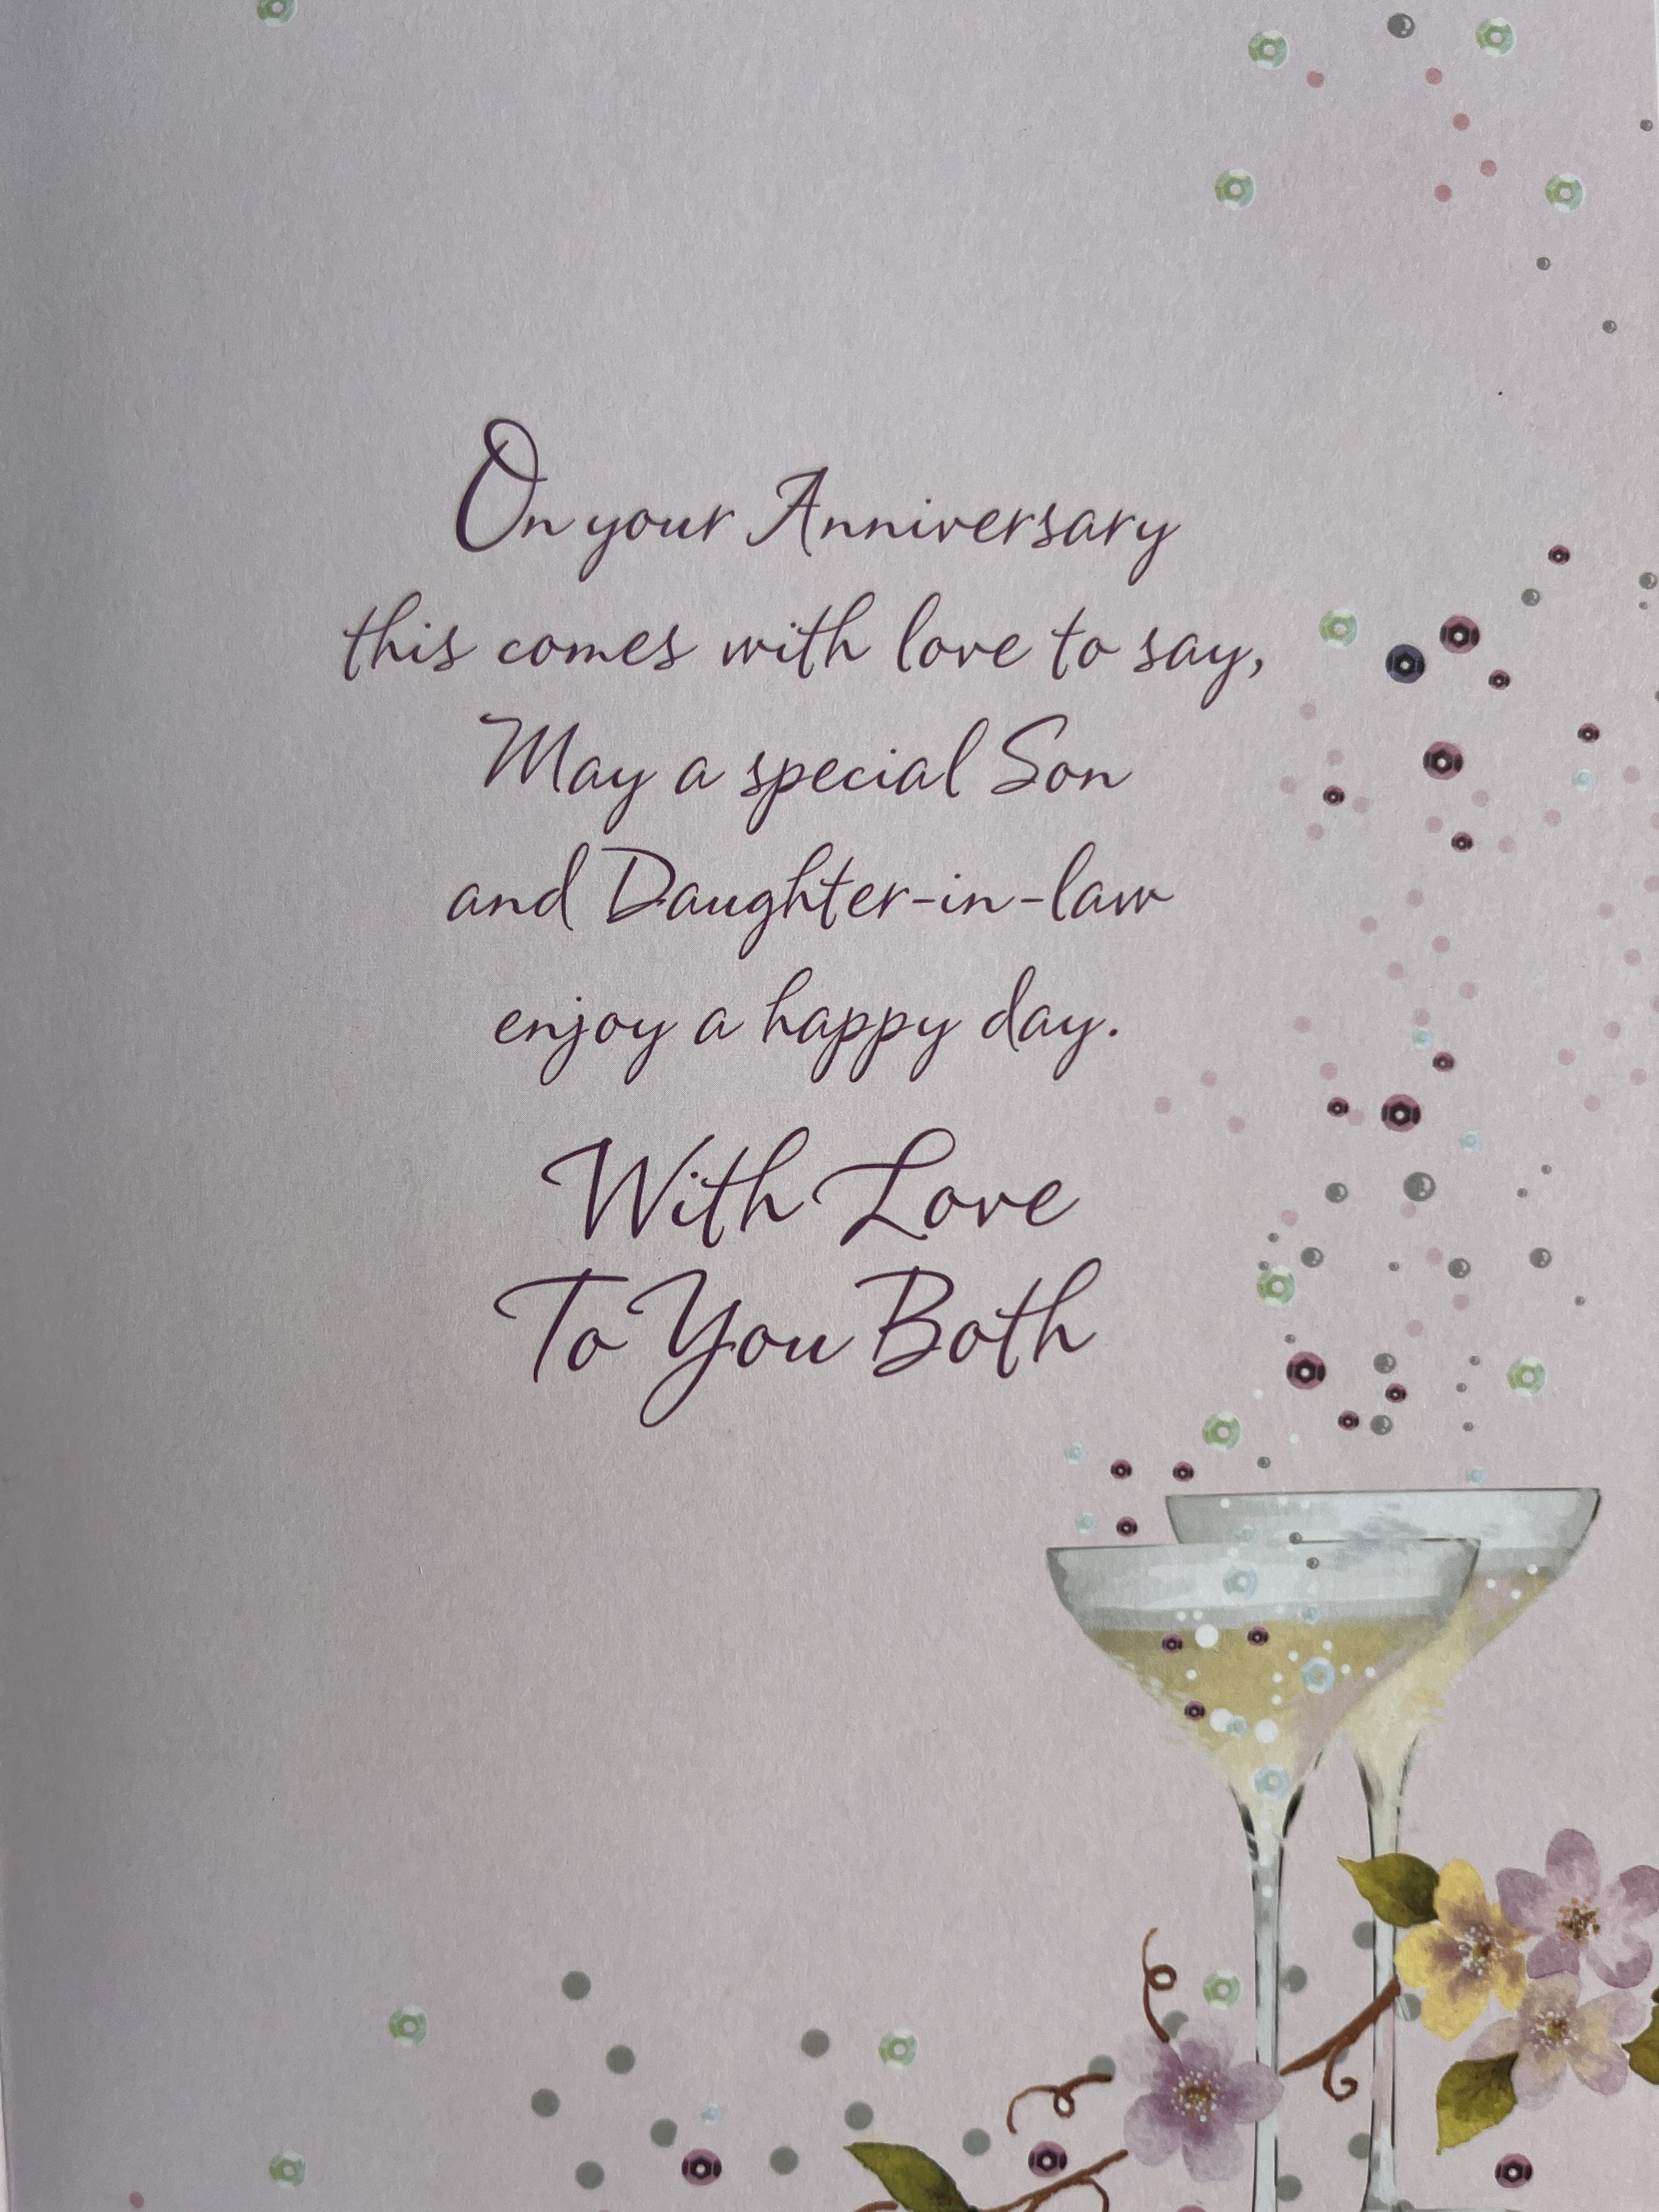 On your Anniversary
this comes with love to say,
May a special Son
and Daughter-in-law
enjoy a happy day.
With Love
To You Both